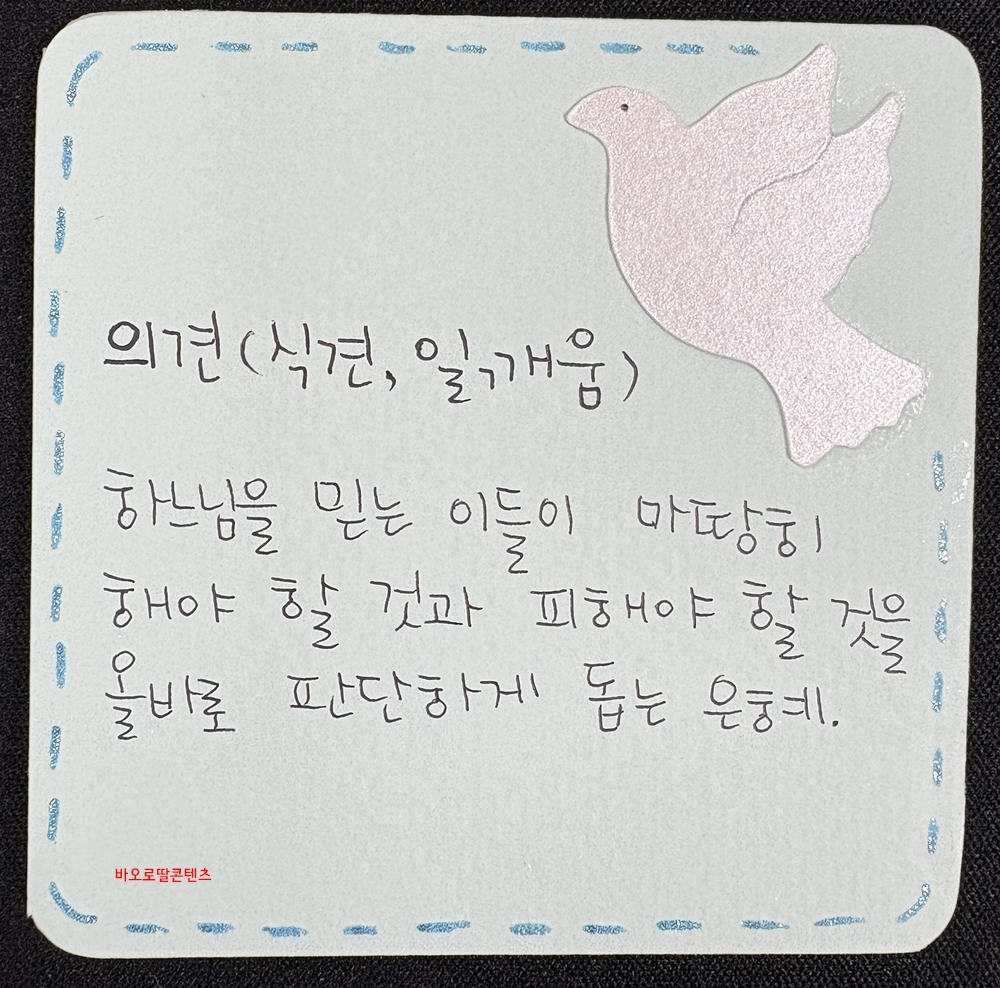 의견(식견, 일깨움)
하느님을 믿는 이들이 마땅히
해야 할 것과 피해야 할 것을
올바로 판단하게 돕는 은혜.
바오로딸콘텐츠